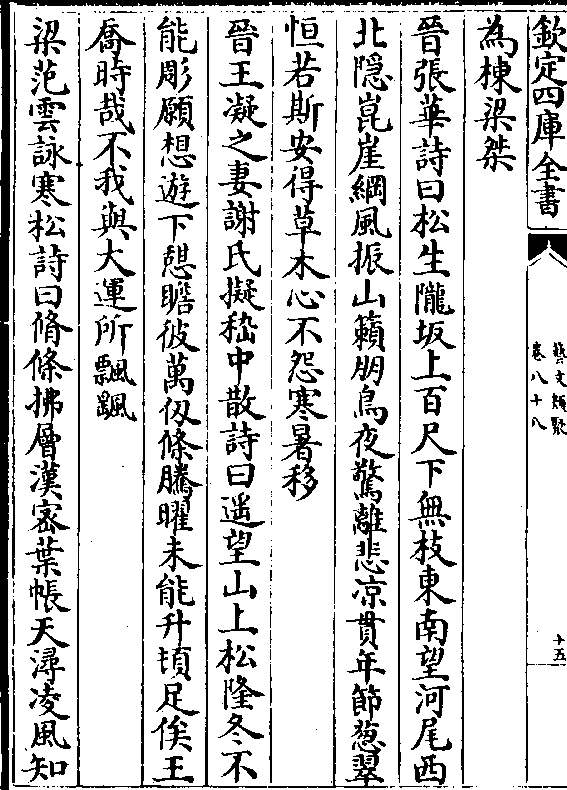 欽定四庫全書
藝文類聚
卷八十八
十五
為棟梁桀
晉張華詩曰松生隴坂上百尺下無枝東南望河尾西
北隠崑崖綱風振山籟朋鳥夜驚離悲凉貫年節葱翠
恒若斯安得草木心不怨寒暑移
晉王凝之妻謝氏擬嵇中散詩曰遥望山上松隆冬不
能彫願想遊下憇瞻彼萬仭條騰曜未能升頓足俟王
喬時哉不我與大運所飄颻
梁范雲詠寒松詩曰脩條拂層漢宻葉帳天潯凌風知